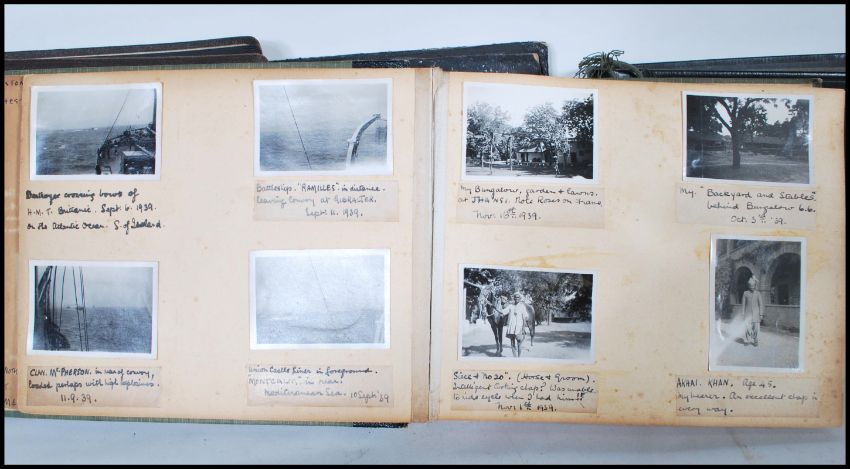 Destroyer crossing bows of
H.M.T. Britannic. Sept. 6. 1939.
on the Atlantic Ocean. S. of Iceland.
Battleship. "RAMILLES" in distance.
leaving Convoy at GIBRALTER.
Sept. 11. 1939.
CLAN. McPHERSON. in van of convoy,
loaded perhaps with high explosives.
11.9.39.
Union Castle Liner in foreground.
in rear.
Mediterranean Sea. 10 Sept '39
My Bungalow, garden & lawns.
at JHANSI. Note Roses on frame.
Nov. 1939.
My. "Backyard and Stables"
behind Bungalow 66.
Oct. 3rd. '39.
Sice & No 20". (Horse & Groom).
Intelligent looking chap? Was unable
to ride cycle when I had him!!
Nov. 1939.
KHAN. Age 45.
my bearer. An excellent chap in
every way.